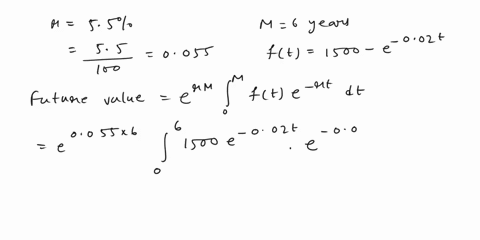 r = 5.5% M = 6 years
= 5.5/100 = 0.055 f(t) = 1500 - e^{-0.02t}
Future value = e^{rM} ∫_0^M f(t) e^{-rt} dt
= e^{0.055×6} ∫_0^6 1500 e^{-0.02t} . e^{-0.0